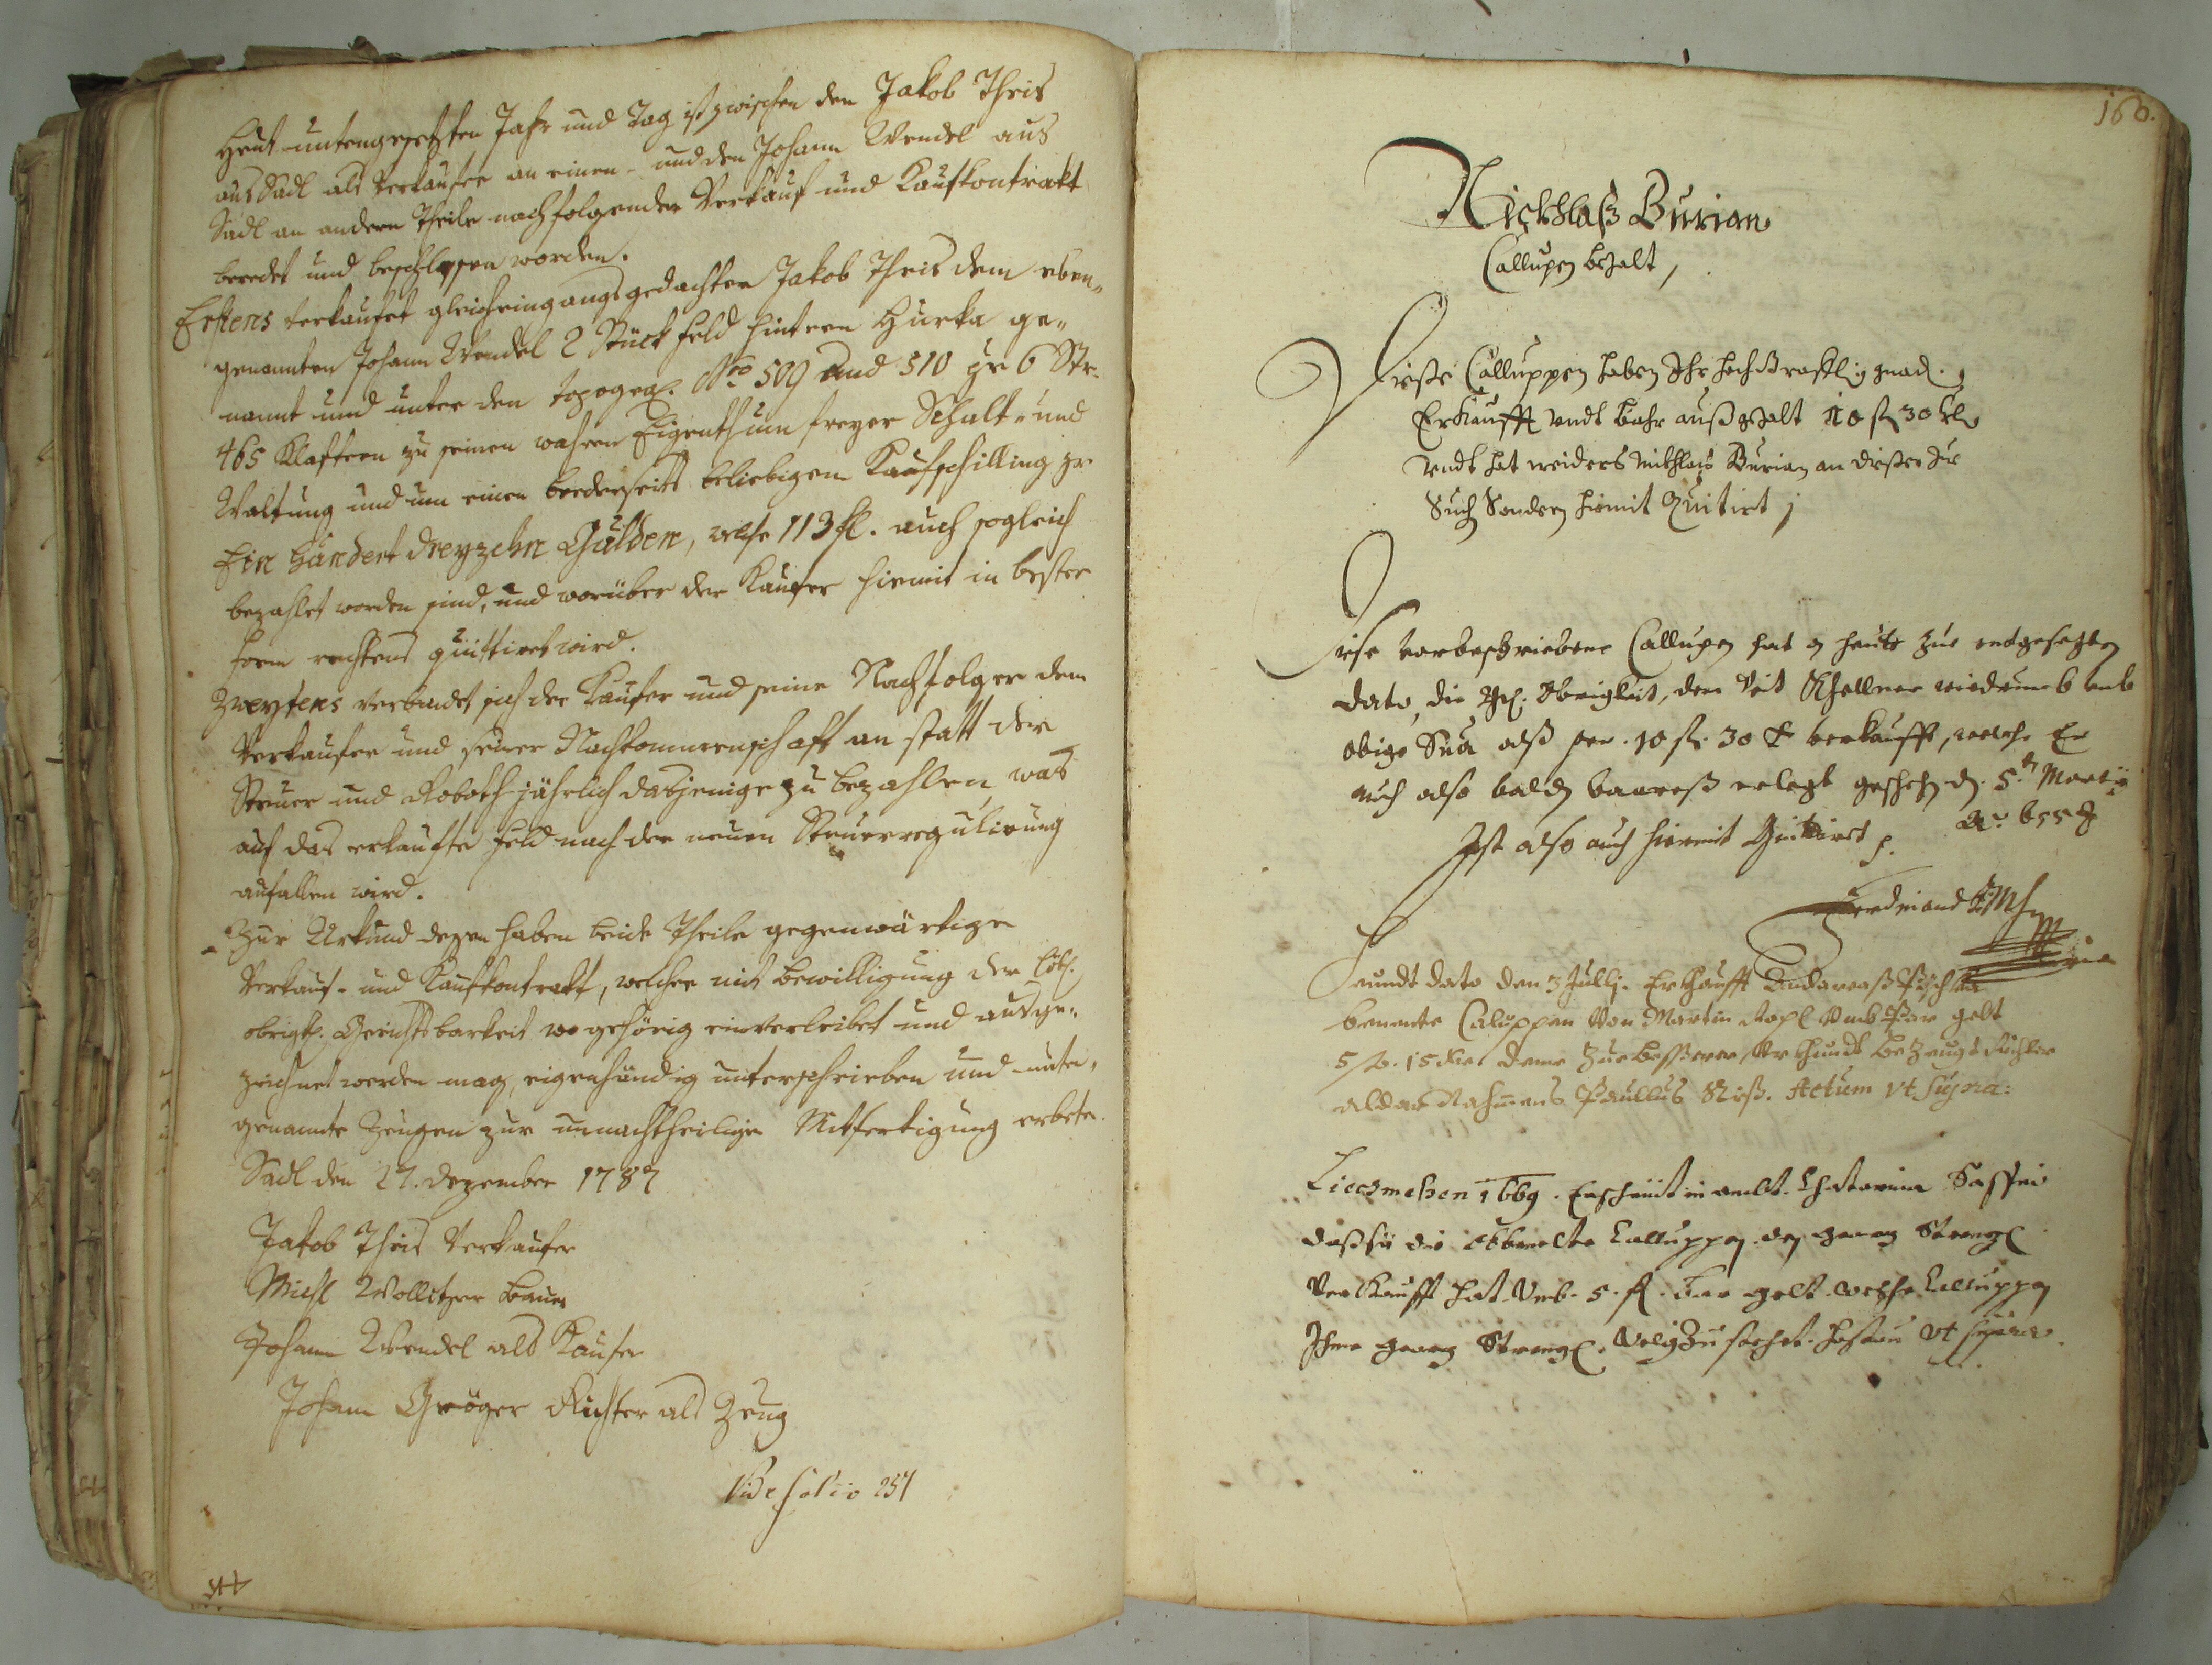 Heut untengesetzten Jahr und Tag ist zwischen den Jakob Theis
aus Sadl als Verkaufer an einen- und den Johann Wendel aus
Sadl an andern Theile nachfolgender Verkauf und Kaufkontrakt
beredet und beschlossen worden.
Erstens verkaufet gleich eingangs gedachter Jakob Theis dem eben„
genannten Johann Wendel 2 Stück Feld hintern Hurka ge„
nannt und unter den topograp. Nro 509 und 510 pr 6 Str.
465 Klaftern zu seinen wahren Eigenthum freyer Schalt- und
Waltung und um einen beederseits beliebigen Kaufschilling pr
Ein Hundert dreyzehn Gulden, welche 113 fl. auch sogleich
bezahlet worden sind, und worüber der Kaufer hiemit in bester
Form rechtens quittiret wird.
Zweytens verbindet sich der Kaufer und seine Nachfolger dem
Verkaufer und seiner Nachkommenschaft an statt der
Steuer und Roboth jährlich dasjenige zu bezahlen, was
auf das erkaufte Feld nach der neuen Steuerregulirung
ausfallen wird.
Zur Urkund dessen haben beide Theile gegenwärtigen
Verkauf- und Kaufkontrakt, welcher mit Bewilligung der löbl.
obrigktl. Gerichtsbarkeit wo gehörig einverleibet und ausge„
zeichnet werden mag, eigenhändig unterschrieben und unten„
genannte Zeugen zur unnachtheiligen Mitfertigung erbeten.
Sadl den 27. Dezember 1787
Jakob Theis Verkaufer
Michl Wollitzer Bauer
Johann Wendel als Kaufer
Johann Gröger Richter als Zeug
Vide folio 257
160.
Nickhlaß Burian
Calluppen bezalt,
Diese Calluppen haben Ihr hochgräfflig gnad.
Erkaufft undt bahr außgezalt 10 fl 30 kr
undt hat weiders Nickhlas Burian an dieser Zu
Such Sondern hiemit Quitirt
Dise vorbeschriebene Callupen hat heute zue endgesezten
dato, die Obrigkeit, dem Veit Schellner wiederumb umb
obige Sua alß per. 10 fl. 30 kr verkaufft, welche Er
auch also baldt baares erlegt geschehen d. 5. Martii
Ao. 655
Ist also auch hiermit Quittirt
Ferdinand
heundt dato den 3 Julli. Erkhaufft Andareaß
benente Caluppen Von Martin Umb Par gelt
5 fl. 15 kr. deme Zue besserer Urkhundt bezeugt Richter
alda Nahmens Paullus. Actum vt Supra:
Liecsmessen 1669. Erscheint in ambt. Chatarina
daß sie die obbemelte Calluppen dem Georg Strengl
Verkaufft hat Umb. 5. fl. Par gelt. welche Calluppen
Ihme Georg Strengl. vt supra.